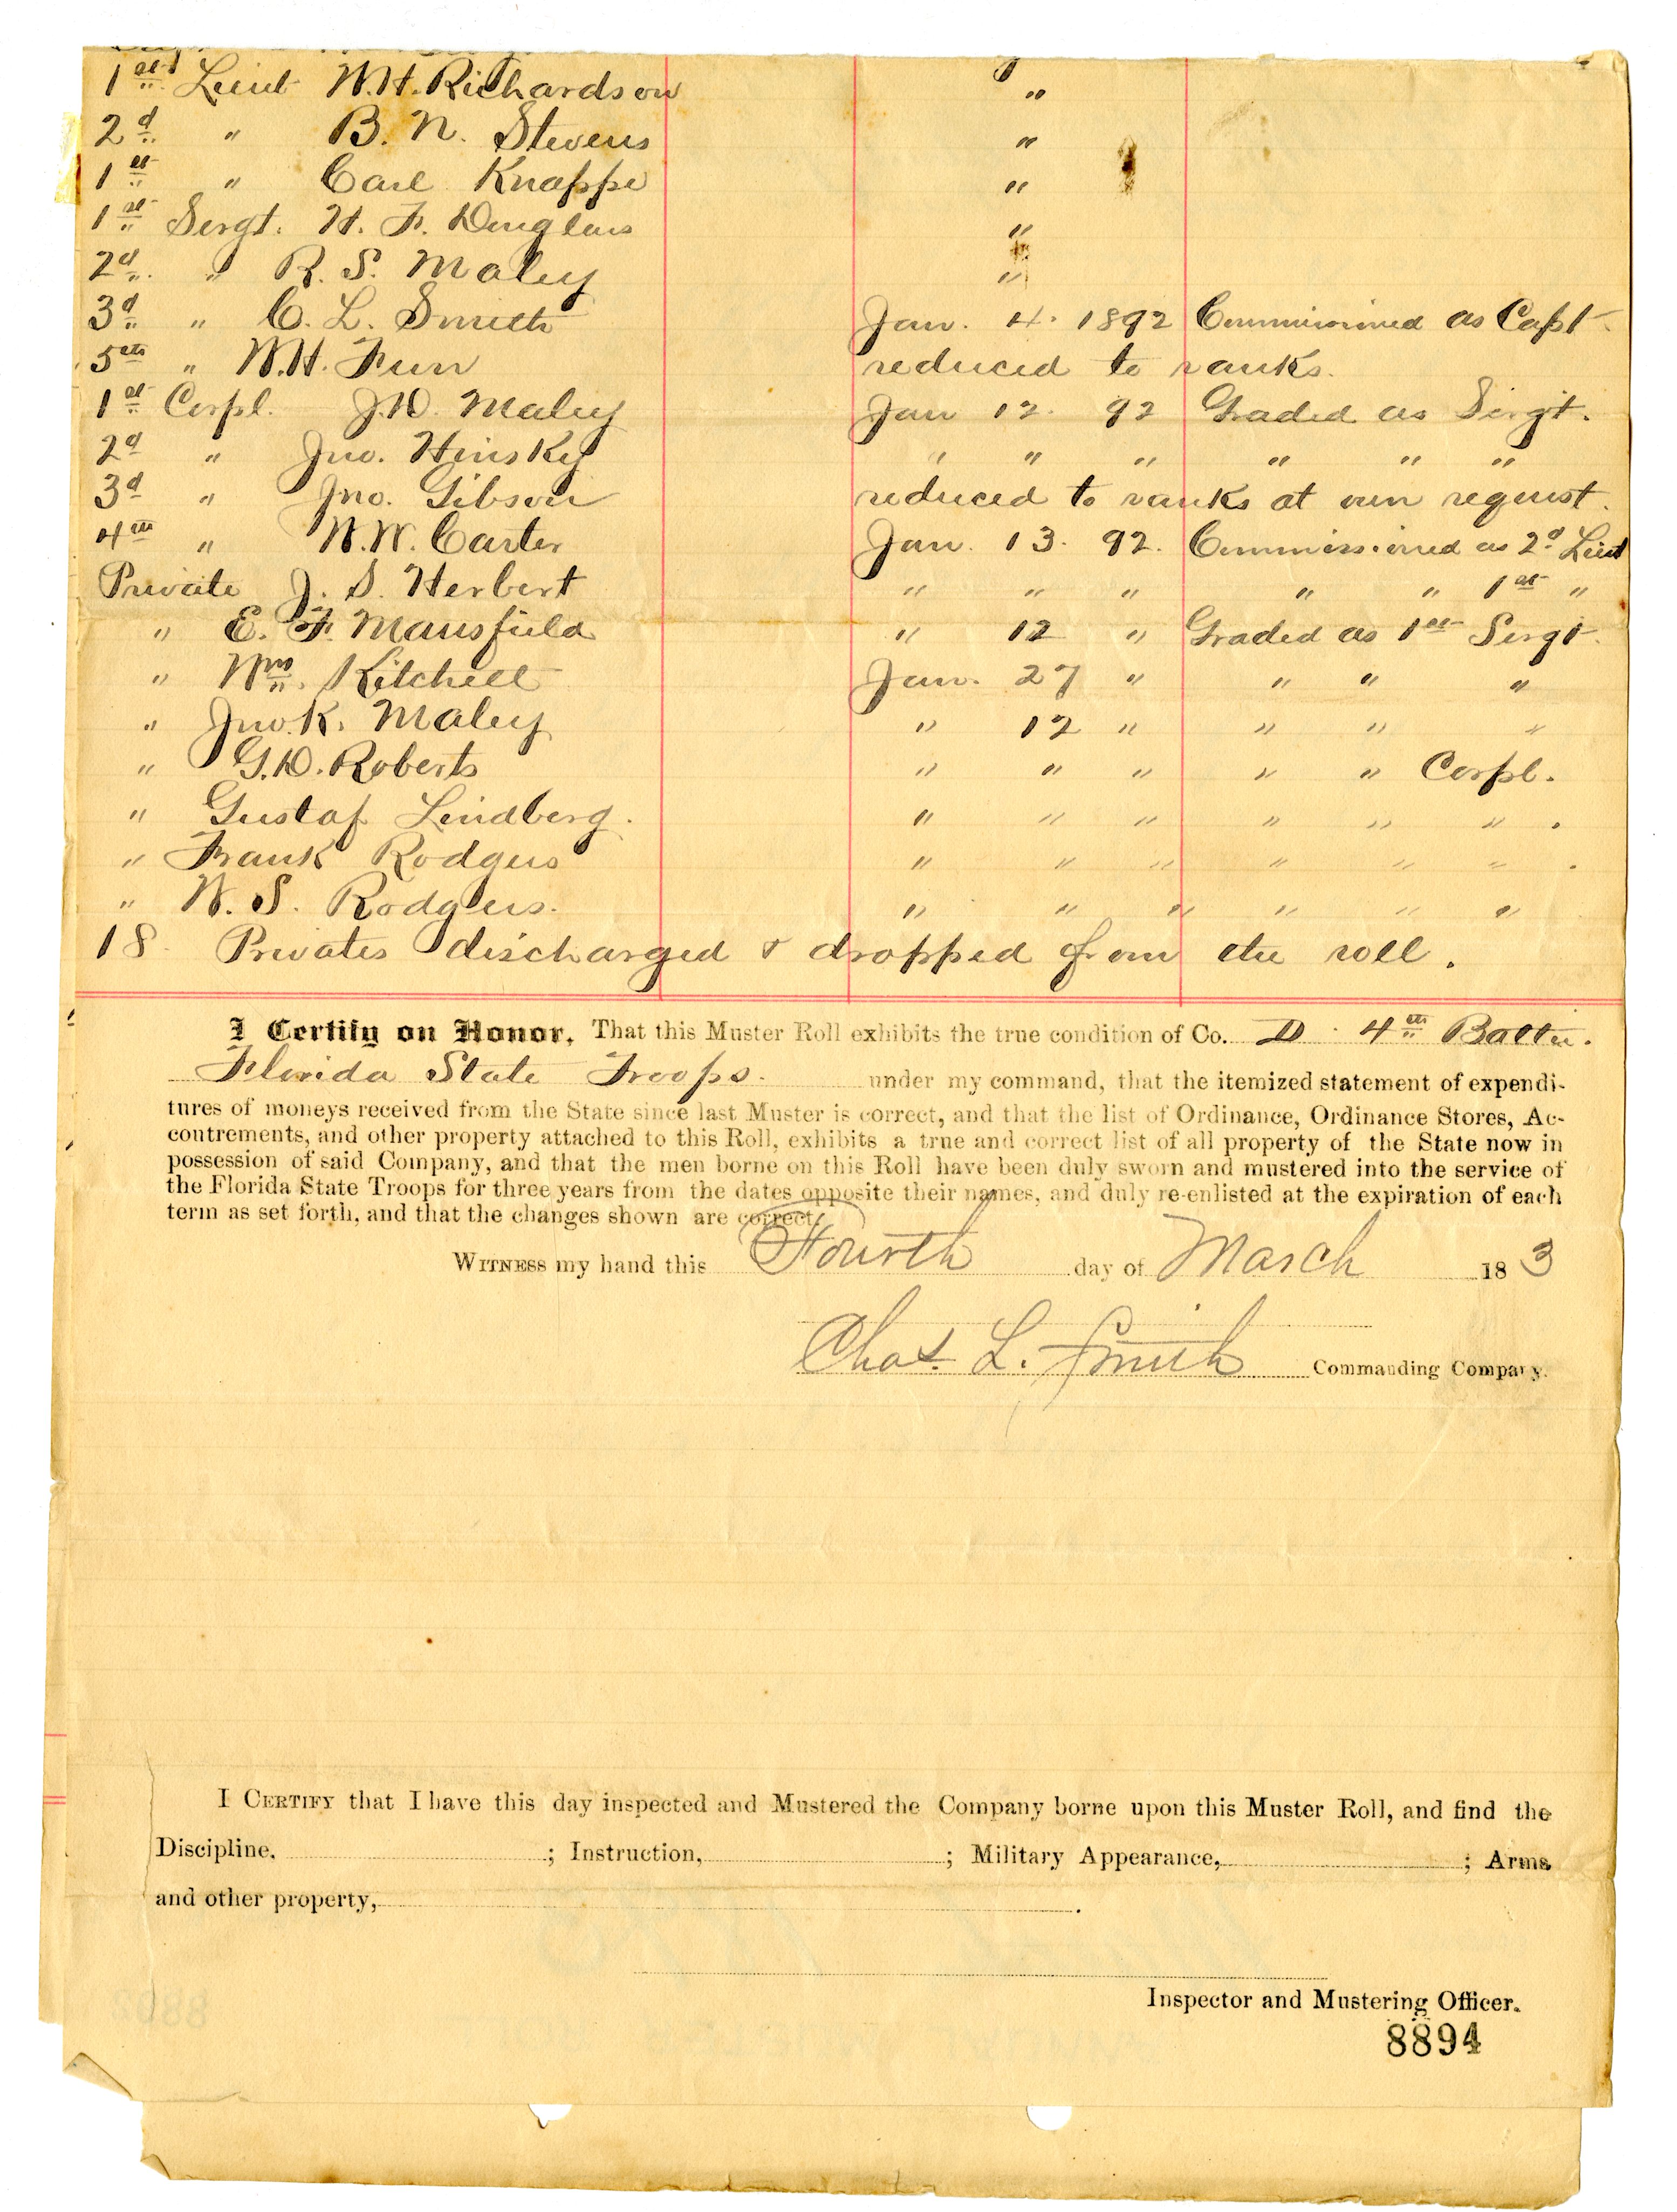 1st Lieut W.H. Richardson "
2d " B. N. Stevens "
1st " Carl Knappe "
1st Sergt. H. F. Douglass "
2d. " R. S. Maley "
3d " C. L. Smith Jan. 4. 1892 Commissioned as Capt.
5th " W.H. Funn reduced to ranks.
1st Corpl. J.D. Maley Jan 12. 92 Graded as Sergt.
2d " Jno. Hinsky " " " " " "
3d " Jno. Gibson reduced to ranks at own request.
4th " W.W. Carter Jan. 13. 92. Commissioned as 2d Lieut
Private J. S. Herbert " " " " " 1st "
" E. F. Mansfield " 12 " Graded as 1st Sergt.
" Wm. Kitchell Jan. 27 " " " "
" Jno. K. Maley " 12 " " " "
" G.D. Roberts " " " " " Corpl.
" Gustaf Lindberg. " " " " " " .
" Frank Rodgers " " " " " " .
" W. S. Rodgers. " " " " " "
18 Privates discharged & dropped from the roll.
I Certify on Honor, That this Muster Roll exhibits the true condition of Co. D. 4th Battn.
Florida State Troops. under my command, that the itemized statement of expendi-
tures of moneys received from the State since last Muster is correct, and that the list of Ordinance, Ordinance Stores, Ac-
contrements, and other property attached to this Roll, exhibits a true and correct list of all property of the State now in
possession of said Company, and that the men borne on this Roll have been duly sworn and mustered into the service of
the Florida State Troops for three years from the dates opposite their names, and duly re-enlisted at the expiration of each
term as set forth, and that the changes shown are correct.
WITNESS my hand this Fourth day of March 18 3
Chas. L. Smith Commanding Company.
I CERTIFY that I have this day inspected and Mustered the Company borne upon this Muster Roll, and find the
Discipline, ; Instruction, ; Military Appearance, ; Arms
and other property, .
Inspector and Mustering Officer.
8894